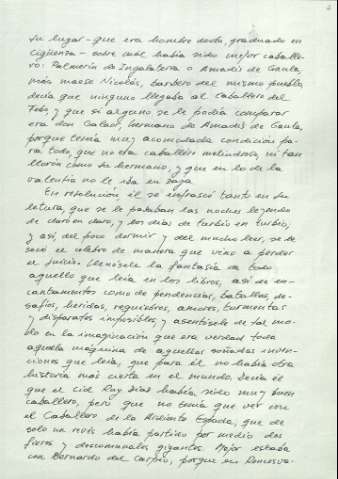 su lugar - que era hombre docto, graduado en
Cigüenza - sobre cuál había sido mejor caballe-
ro: Palmerín de Ingalaterra o Amadís de Gaula,
más maese Nicolás, barbero del mismo pueblo,
decía que ninguno llegaba al Caballero del
Febo, y que si alguno se le podía comparar
era don Galaor, hermano de Amadís de Gaula,
porque tenía muy acomodada condición pa-
ra todo, que no era caballero melindroso, ni tan
llorón como su hermano, y que en lo de la
valentía no le iba en zaga.
En resolución él se enfrascó tanto en su
letura, que se le pasaban las noches leyendo
de claro en claro, y los días de turbio en turbio,
y así, del poco dormir y del mucho leer, se le
secó el celebro de manera que vino a perder
el juicio. Llenósele la fantasía de todo
aquello que leía en los libros, así de en-
cantamentos como de pendencias, batallas, de-
safíos, heridas, requiebros, amores, tormentas
y disparates imposibles y asentósele de tal mo-
do en la imaginación que era verdad toda
aquella máquina de aquellas soñadas inven-
ciones que leía, que para él no había otra
historia más cierta en el mundo. Decía él
que el Cid Ruy Díaz había sido muy buen
caballero, pero que no tenía que ver con
el Caballero de la Ardiente Espada, que de
solo un revés había partido por medio dos
fieros y descomunales gigantes. Mejor estaba
con Bernardo del Carpio, porque en Roncesva-